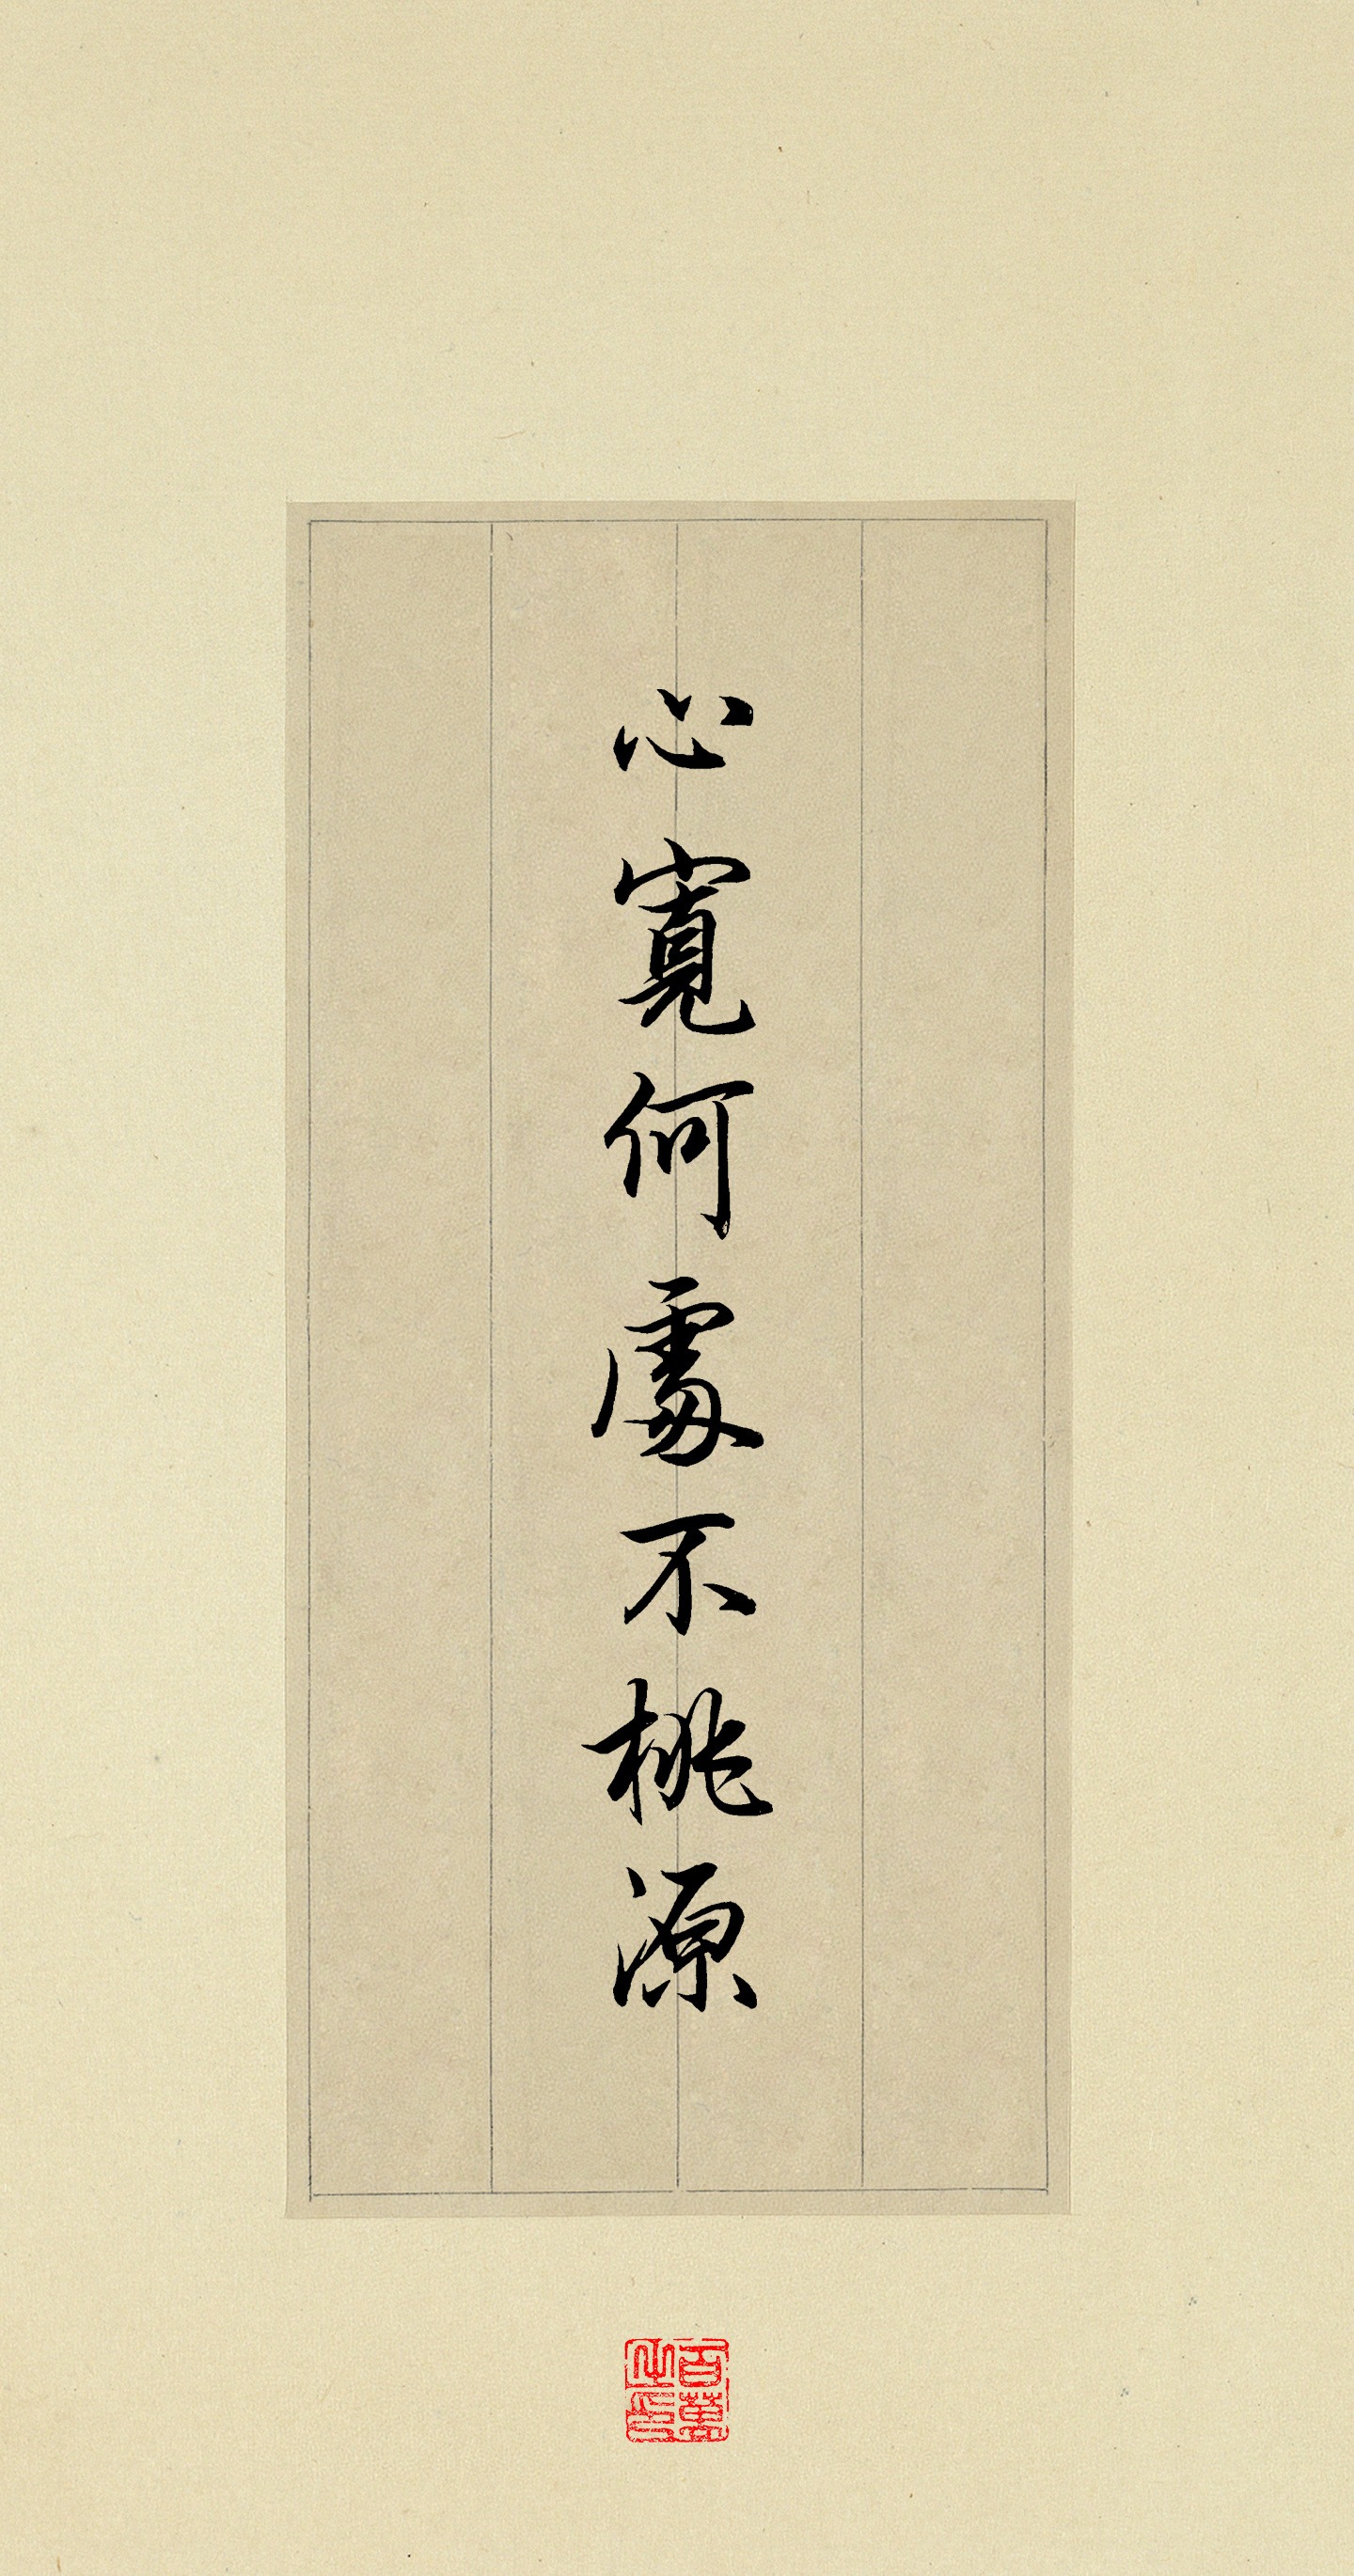 心寬何處不桃源